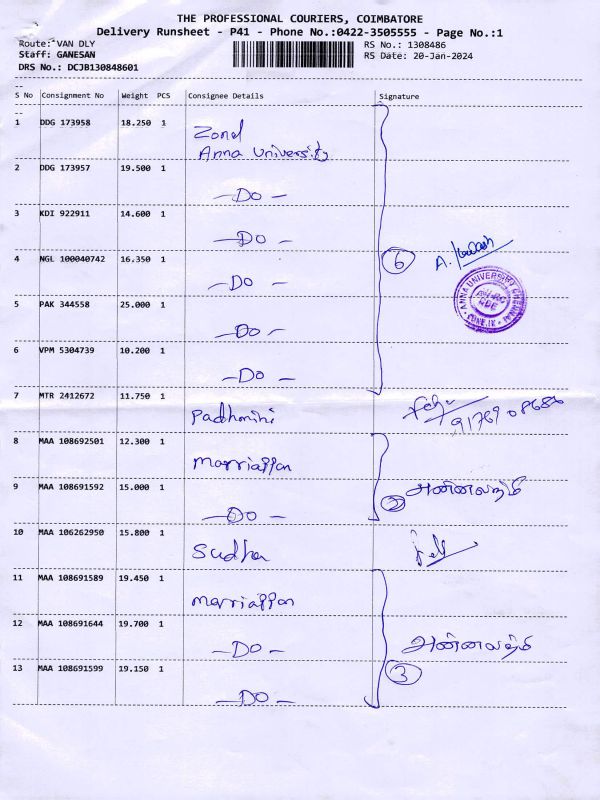 THE PROFESSIONAL COURIERS, COIMBATORE
Delivery Runsheet - P41 - Phone No.:0422-3505555 - Page No.:1
Route: VAN DLY
RS No.: 1308486
Staff: GANESAN
RS Date: 20-Jan-2024
DRS No.: DCJB130848601
S No Consignment No Weight PCS Consignee Details Signature
1 DDG 173958 18.250 1 Zonal
Anna University
2 DDG 173957 19.500 1 —Do—
3 KDI 922911 14.600 1 —Do—
4 NGL 100040742 16.350 1 —Do— 6
5 PAK 344558 25.000 1 —Do—
6 VPM 5304739 10.200 1 —Do—
7 MTR 2412672 11.750 1 Padhmini
8 MAA 108692501 12.300 1 Marriappan
9 MAA 108691592 15.000 1 —Do— 2
10 MAA 106262950 15.800 1 Sudha
11 MAA 108691589 19.450 1 Marriappan
12 MAA 108691644 19.700 1 —Do—
13 MAA 108691599 19.150 1 —Do— 3